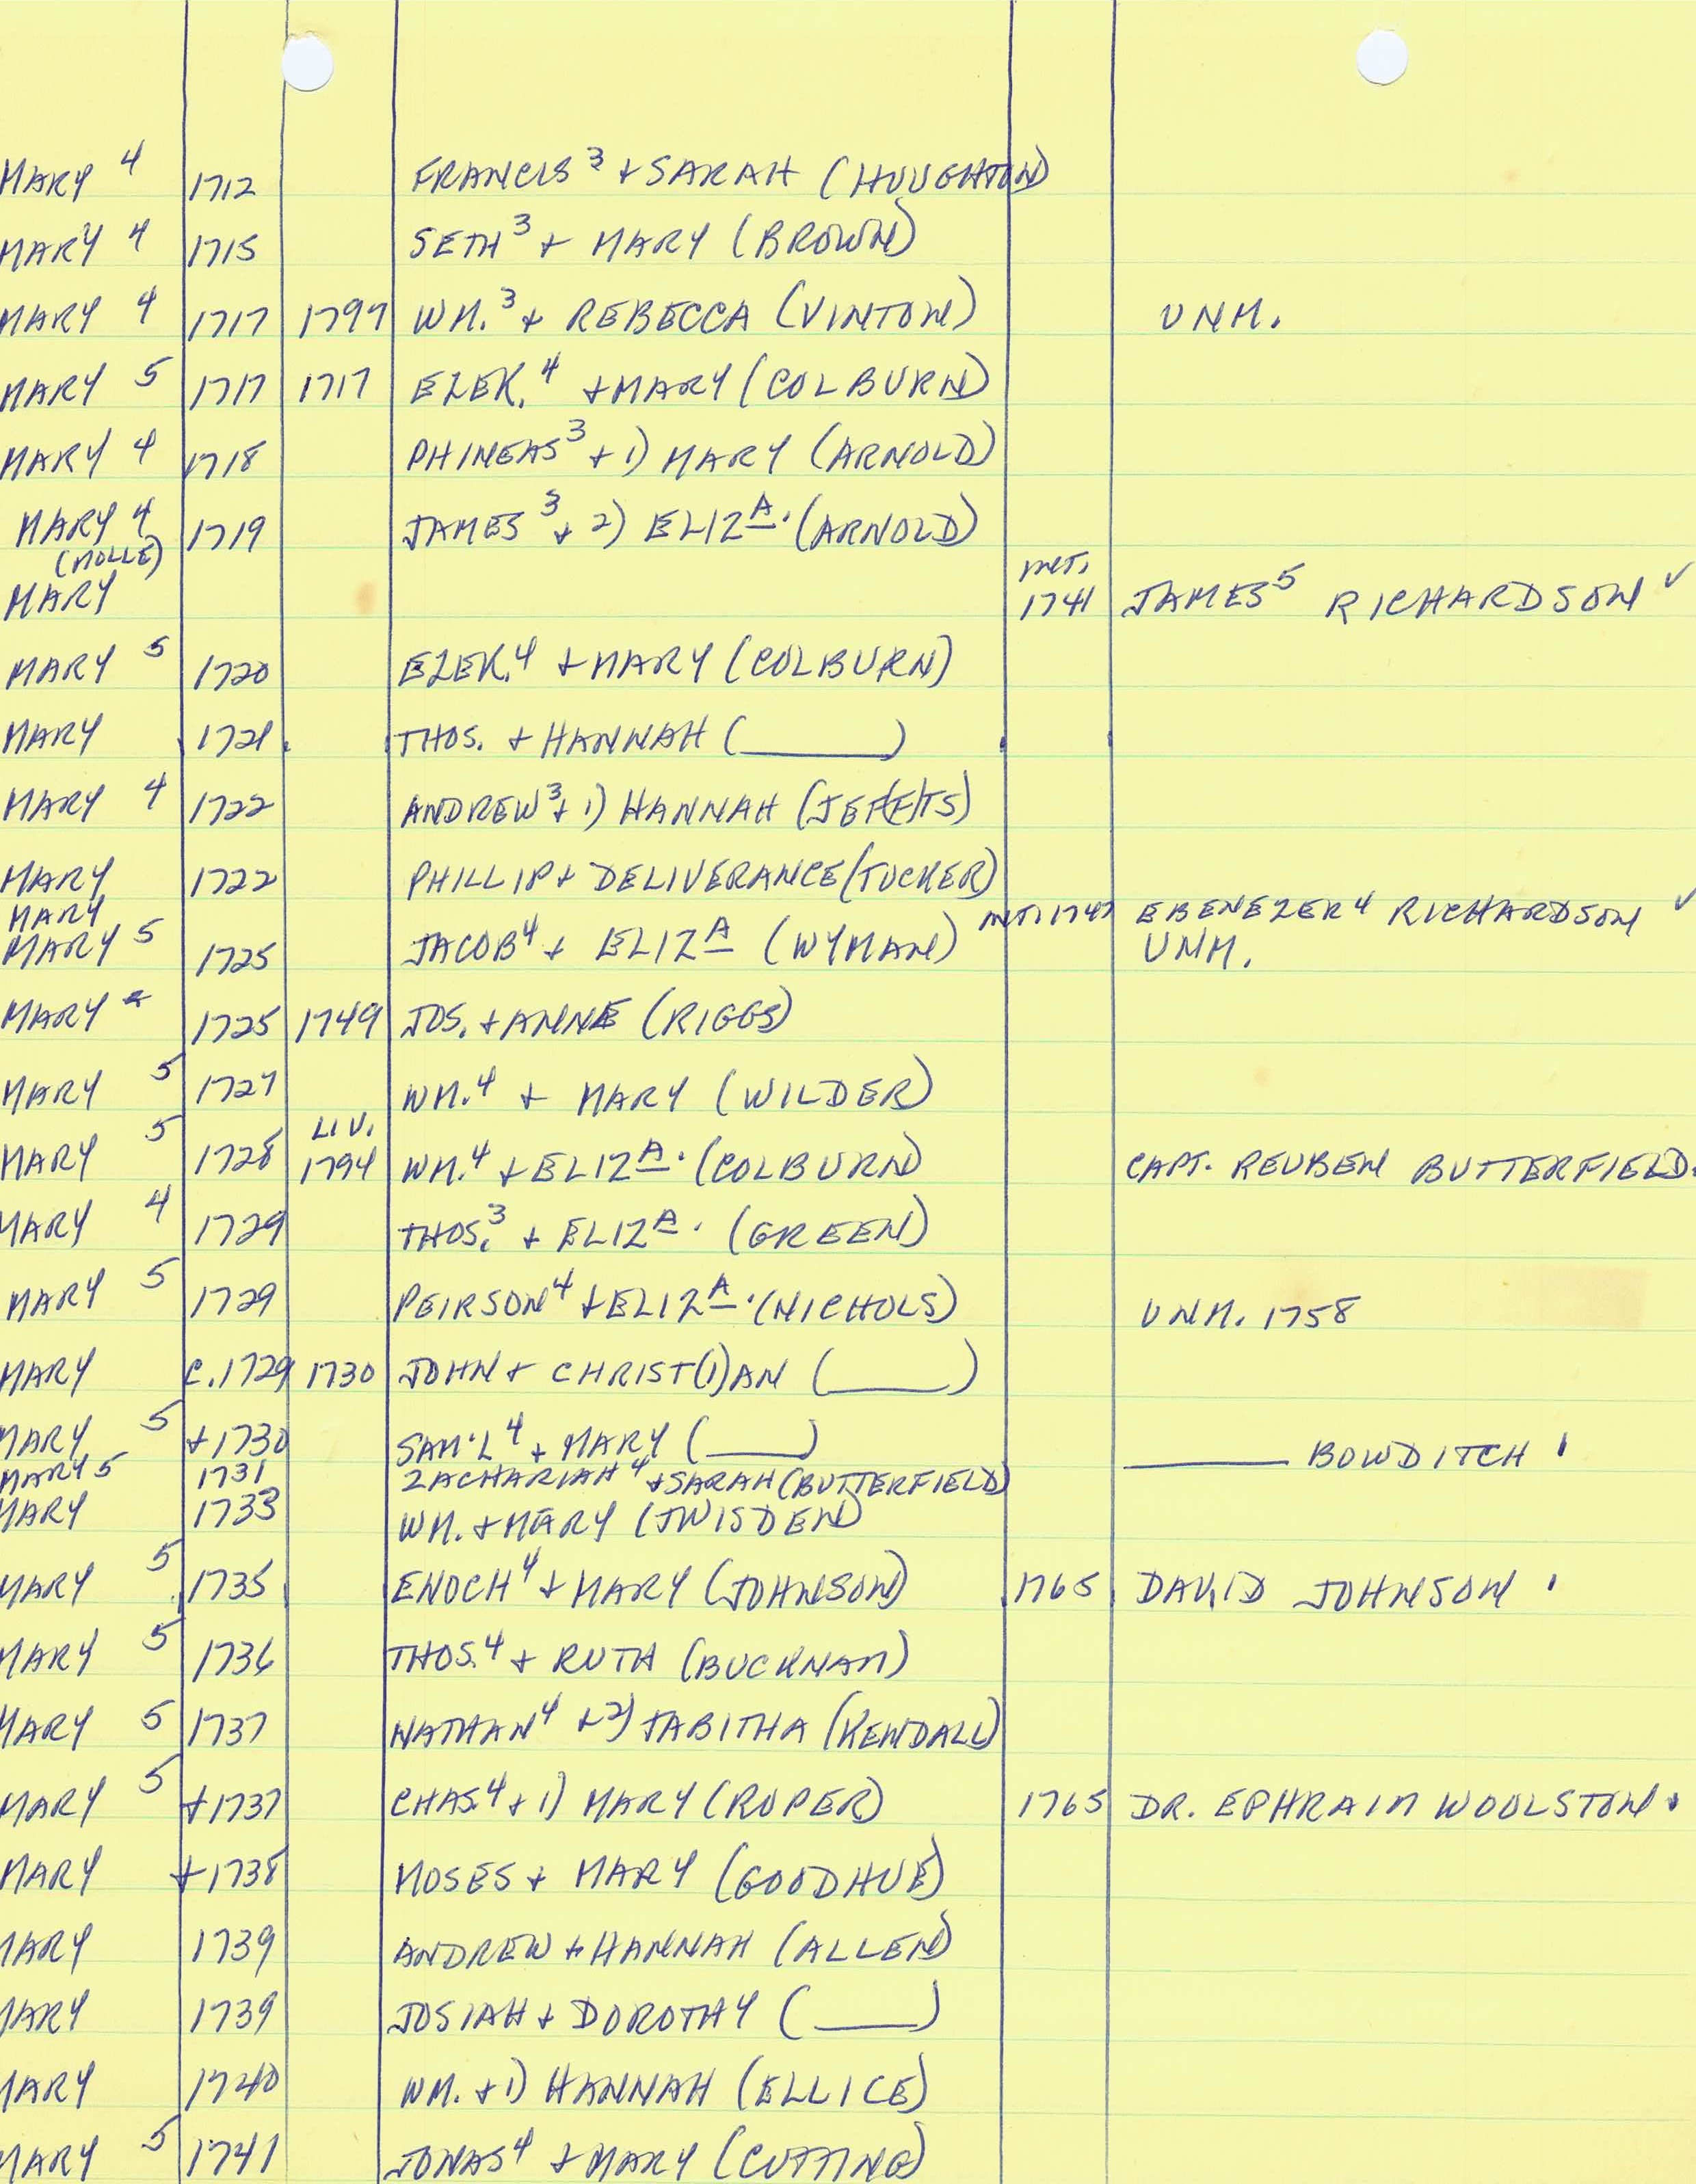 MARY 4 1712 FRANCIS 3 + SARAH (HOUGHTON)
MARY 4 1715 SETH 3 + MARY (BROWN)
MARY 4 1717 1797 WM. 3 + REBECCA (VINTON) UNM.
MARY 5 1717 1717 EZEK. 4 + MARY (COLBURN)
MARY 4 1718 PHINEAS 3 + 1) MARY (ARNOLD)
MARY 4 1719 JAMES 3 + 2) ELIZA. (ARNOLD)
(MOLLE) INT.
MARY 1741 JAMES 5 RICHARDSON ✓
MARY 5 1720 EZEK. 4 + MARY (COLBURN)
MARY 1721 THOS. + HANNAH (______)
MARY 4 1722 ANDREW 3 + 1) HANNAH (JEF(F)TS)
MARY 1722 PHILLIP + DELIVERANCE (TUCKER)
MARY INT. 1747 EBENEZER 4 RICHARDSON ✓
MARY 5 1725 JACOB 4 + ELIZA (WYMAN) UNM.
MARY 1725 1749 JOS. + ANNE (RIGGS)
MARY 5 1727 WM. 4 + MARY (WILDER)
LIV.
MARY 5 1728 1794 WM. 4 + ELIZA. (COLBURN) CAPT. REUBEN BUTTERFIELD.
MARY 4 1729 THOS. 3 + ELIZA. (GREEN)
MARY 5 1729 PEIRSON 4 + ELIZA. (NICHOLS) UNM. 1758
MARY C. 1729 1730 JOHN + CHRIST(I)AN (______)
MARY 5 +1730 SAM'L 4 + MARY (____) ______ BOWDITCH
MARY 5 1731 ZACHARIAH 4 + SARAH (BUTTERFIELD)
MARY 1733 WM. + MARY (TWISDEN)
MARY 5 1735 ENOCH 4 + MARY (JOHNSON) 1765 DAVID JOHNSON
MARY 5 1736 THOS. 4 + RUTH (BUCKNAM)
MARY 5 1737 NATHAN 4 + 2) TABITHA (KENDALL)
MARY 5 +1737 CHAS. 4 + 1) MARY (ROPER) 1765 DR. EPHRAIM WOOLSTON
MARY +1738 MOSES + MARY (GOODHUE)
MARY 1739 ANDREW + HANNAH (ALLEN)
MARY 1739 JOSIAH + DOROTHY (____)
MARY 1740 WM. + 1) HANNAH (ELLICE)
MARY 5 1741 JONAS 4 + MARY (CUTTING)